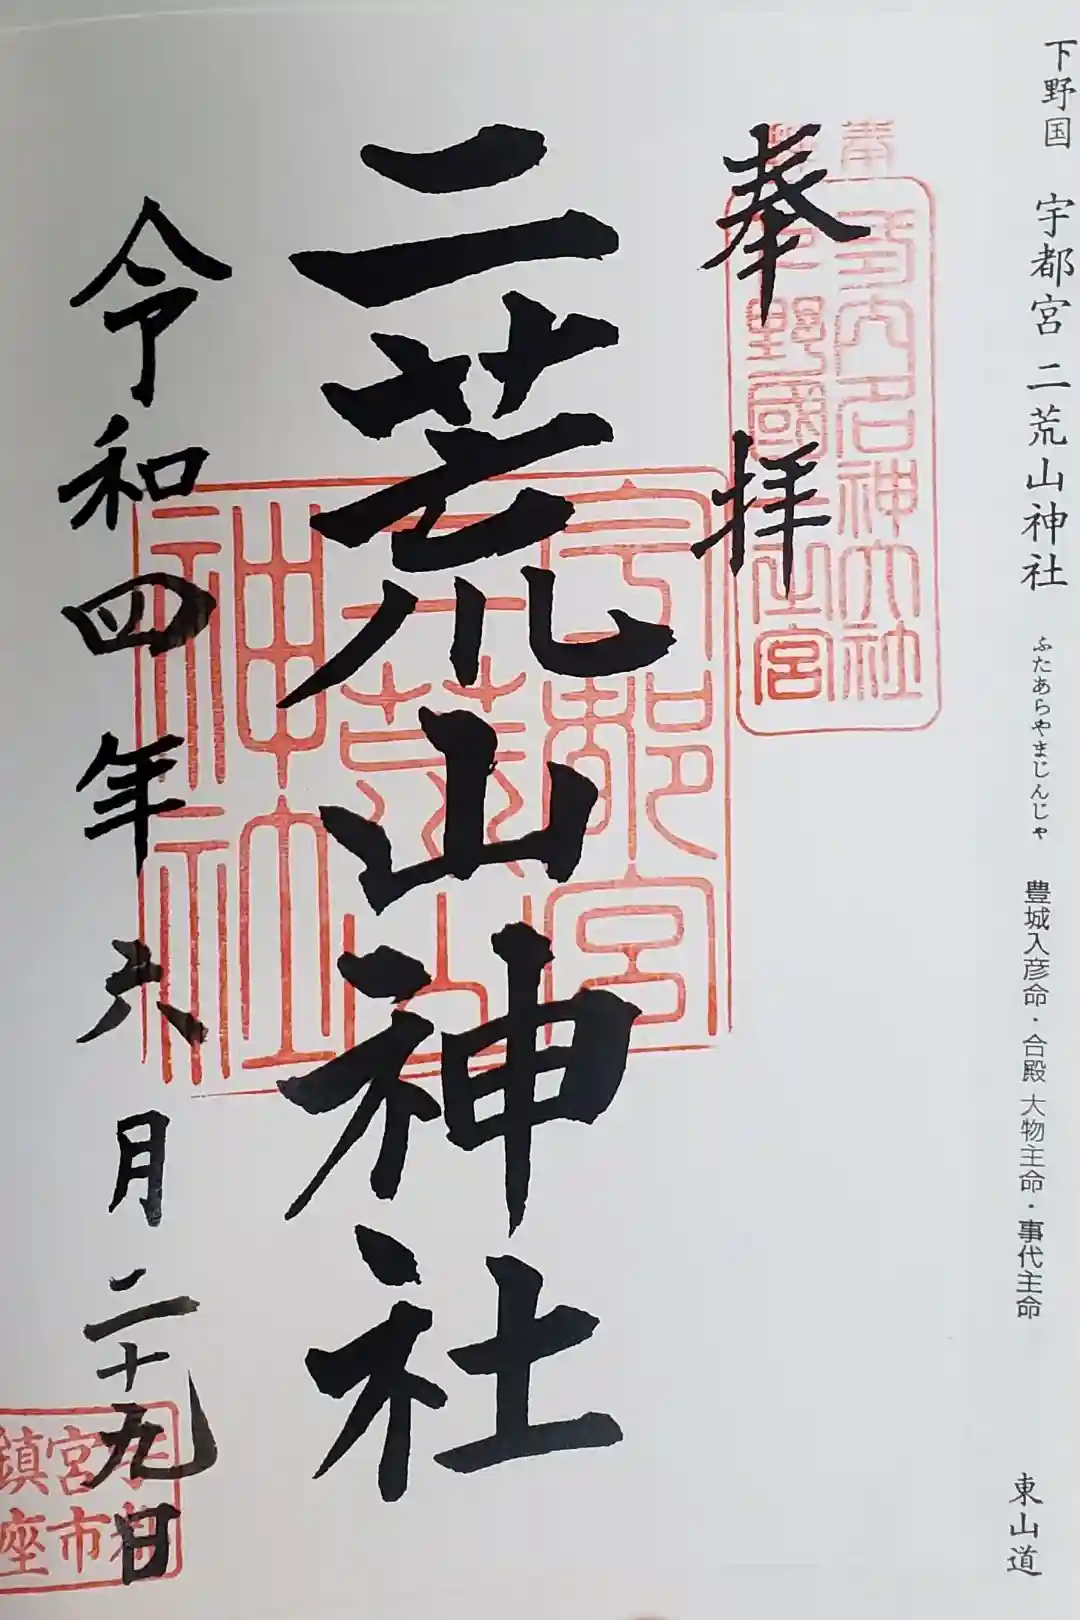 下野国 宇都宮 二荒山神社 ふたあらやまじんじゃ 豊城入彦命・合殿 大物主命・事代主命 東山道
奉拝
二荒山神社
令和四年六月二十九日
式内名神大社
下野國一之宮
宇都宮
二荒山
神社
宇都
宮市
鎮座